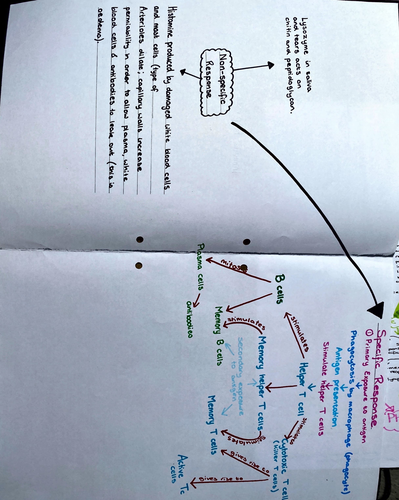 Lysozyme in saliva
and tears acts on
chitin and peptidoglycan.
Non-specific
Response
Histamine produced by damaged white blood cells
and mast cells (type of
Arterioles dilate; capillary walls increase
permiability in order to allow plasma, white
blood cells & antibodies to leak out (this is
oedema).
Specific Response
① Primary Exposure to antigen
Phagocytosis by macrophage (phagocyte)
Antigen presentation
Stimulate helper T cells
Helper T cell
stimulates
stimulates
B cells
Cytotoxic T cells
(killer T cells)
mitosis
Memory helper T cells
stimulates
Plasma cells
antibodies
Memory B cells
secondary exposure
to antigen
stimulates
gives rise to
gives rise to
Memory T cells
Active Tc
cells